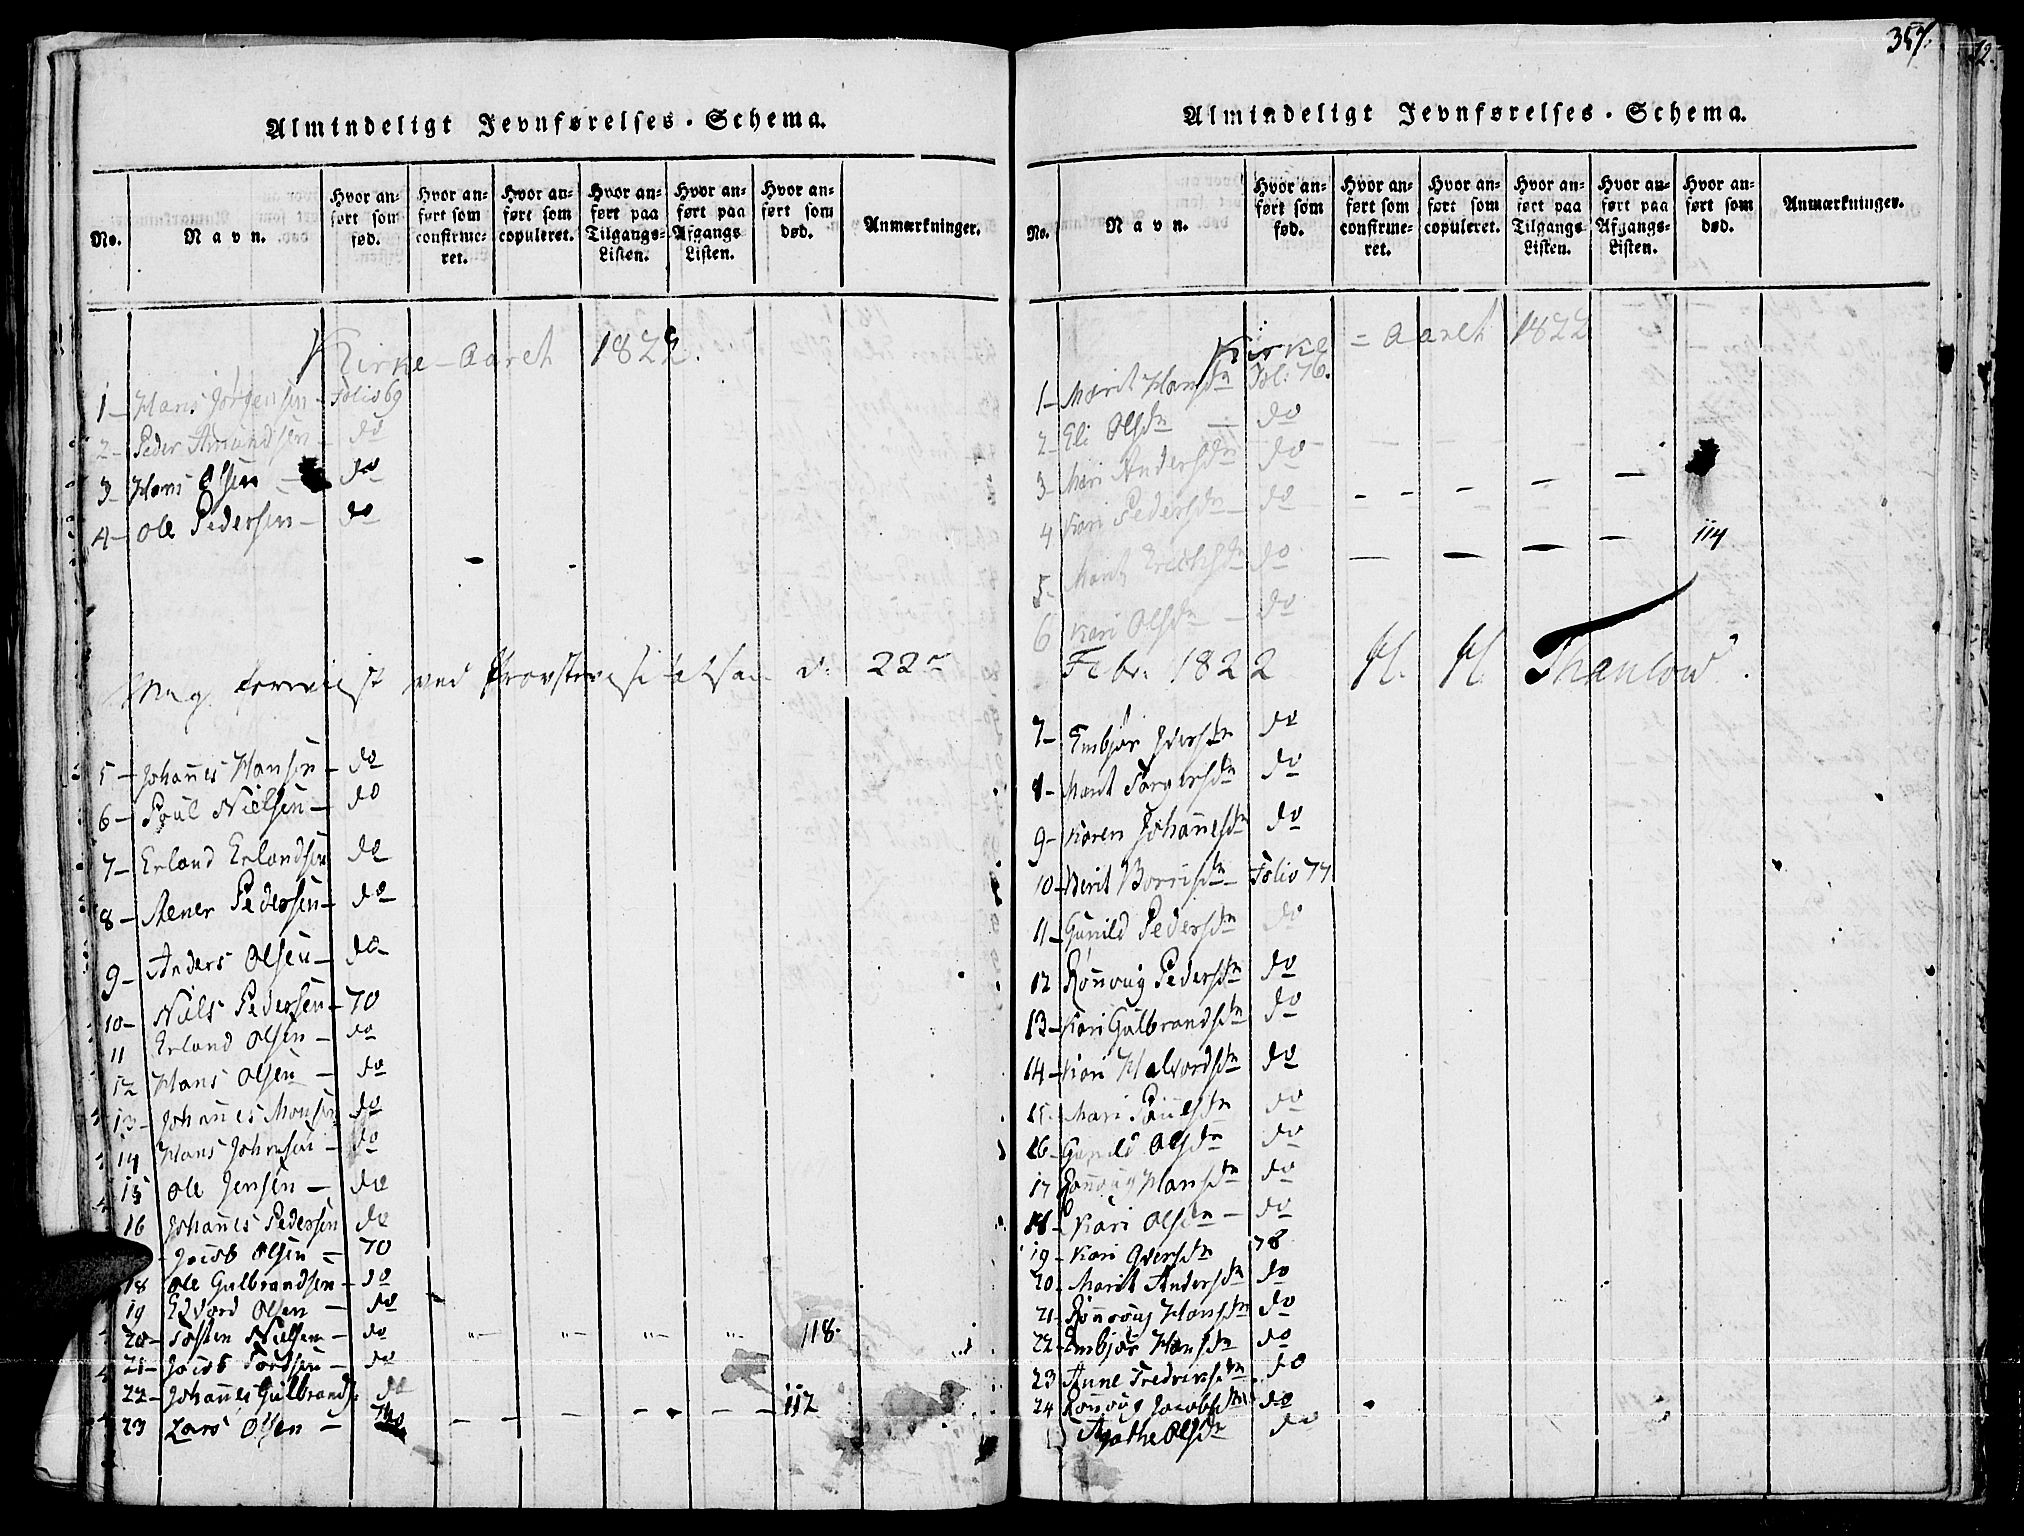 357.
Almindeligt Jevnførelses-Schema.
No. Navn. Hvor anført som fød. Hvor anført som confirmeret. Hvor anført som copuleret. Hvor anført paa Tilgangs-Listen. Hvor anført paa Afgangs Listen. Hvor anført som død. Anmærkninger.
Kirke-Aaret 1822.
1- Hans Jørgensen - Folio 69
2- Peder Amundsen - do
3- Hans Olsen - do
4- Ole Pedersen - do
ved Provstevisitatsen d: 22de
5- Johannes Hansen - do
6- Poul Nielsen - do
7- Erland Erlandsen do
8- Aener Pedersen - do
9- Anders Olsen - do
10- Niels Pedersen - 70
11 Erland Olsen - do
12 Hans Olsen - do
13- Johannes Monsen do
14 Hans Johnsen - do
15 Ole Jensen - do
16 Johannes Pedersen do
Jacob Olsen - 70
18 Ole Gulbrandsen - do
19 Edvard Olsen - do
20- Tosten Nielsen - do " " " " 118.
21- Jacob Tordsen - do
22- Johannes Gulbrands. do
23 Lars Olsen - - - - - - - 112
Almindeligt Jevnførelses-Schema.
No. Navn. Hvor anført som fød. Hvor anført som confirmeret. Hvor anført som copuleret. Hvor anført paa Tilgangs Listen. Hvor anført paa Afgangs-Listen. Hvor anført som død. Anmærkninger.
Kirke=Aaret 1822
1- Marit Hansdn Fol: 76.
2- Eli Olsdn - do
3- Mari Andersdn do
4 Kari Pedersdn - do - - - - -
5- Marit Erichsdn do - - - - - 114
6 Kari Olsdn - do
Febr: 1822 H. H. Thaulow.
7- Embjør Iversdn do
8- Marit Torgersdn do
9- Karen Johannesdn do
10- Berit Borrisdn - Folio 77
11- Gunild Pedersdn do
12 Rønnoug Pedersdn do
13- Kari Gulbrandsdn do
14- Kari Halvordsdn do
15- Mari Poulsdn do
16- Gunild Olsdn do
17 Rønnoug Hansdn do
18- Kari Olsdn - do
19- Kari Iversdn 78
20- Marit Andersdn do
21- Rønnoug Hansdn do
22- Embjør Hansdn do
23 Anne Fredriksdn do
24 Rønnoug Jacobsdn do
Agathe Olsdn do